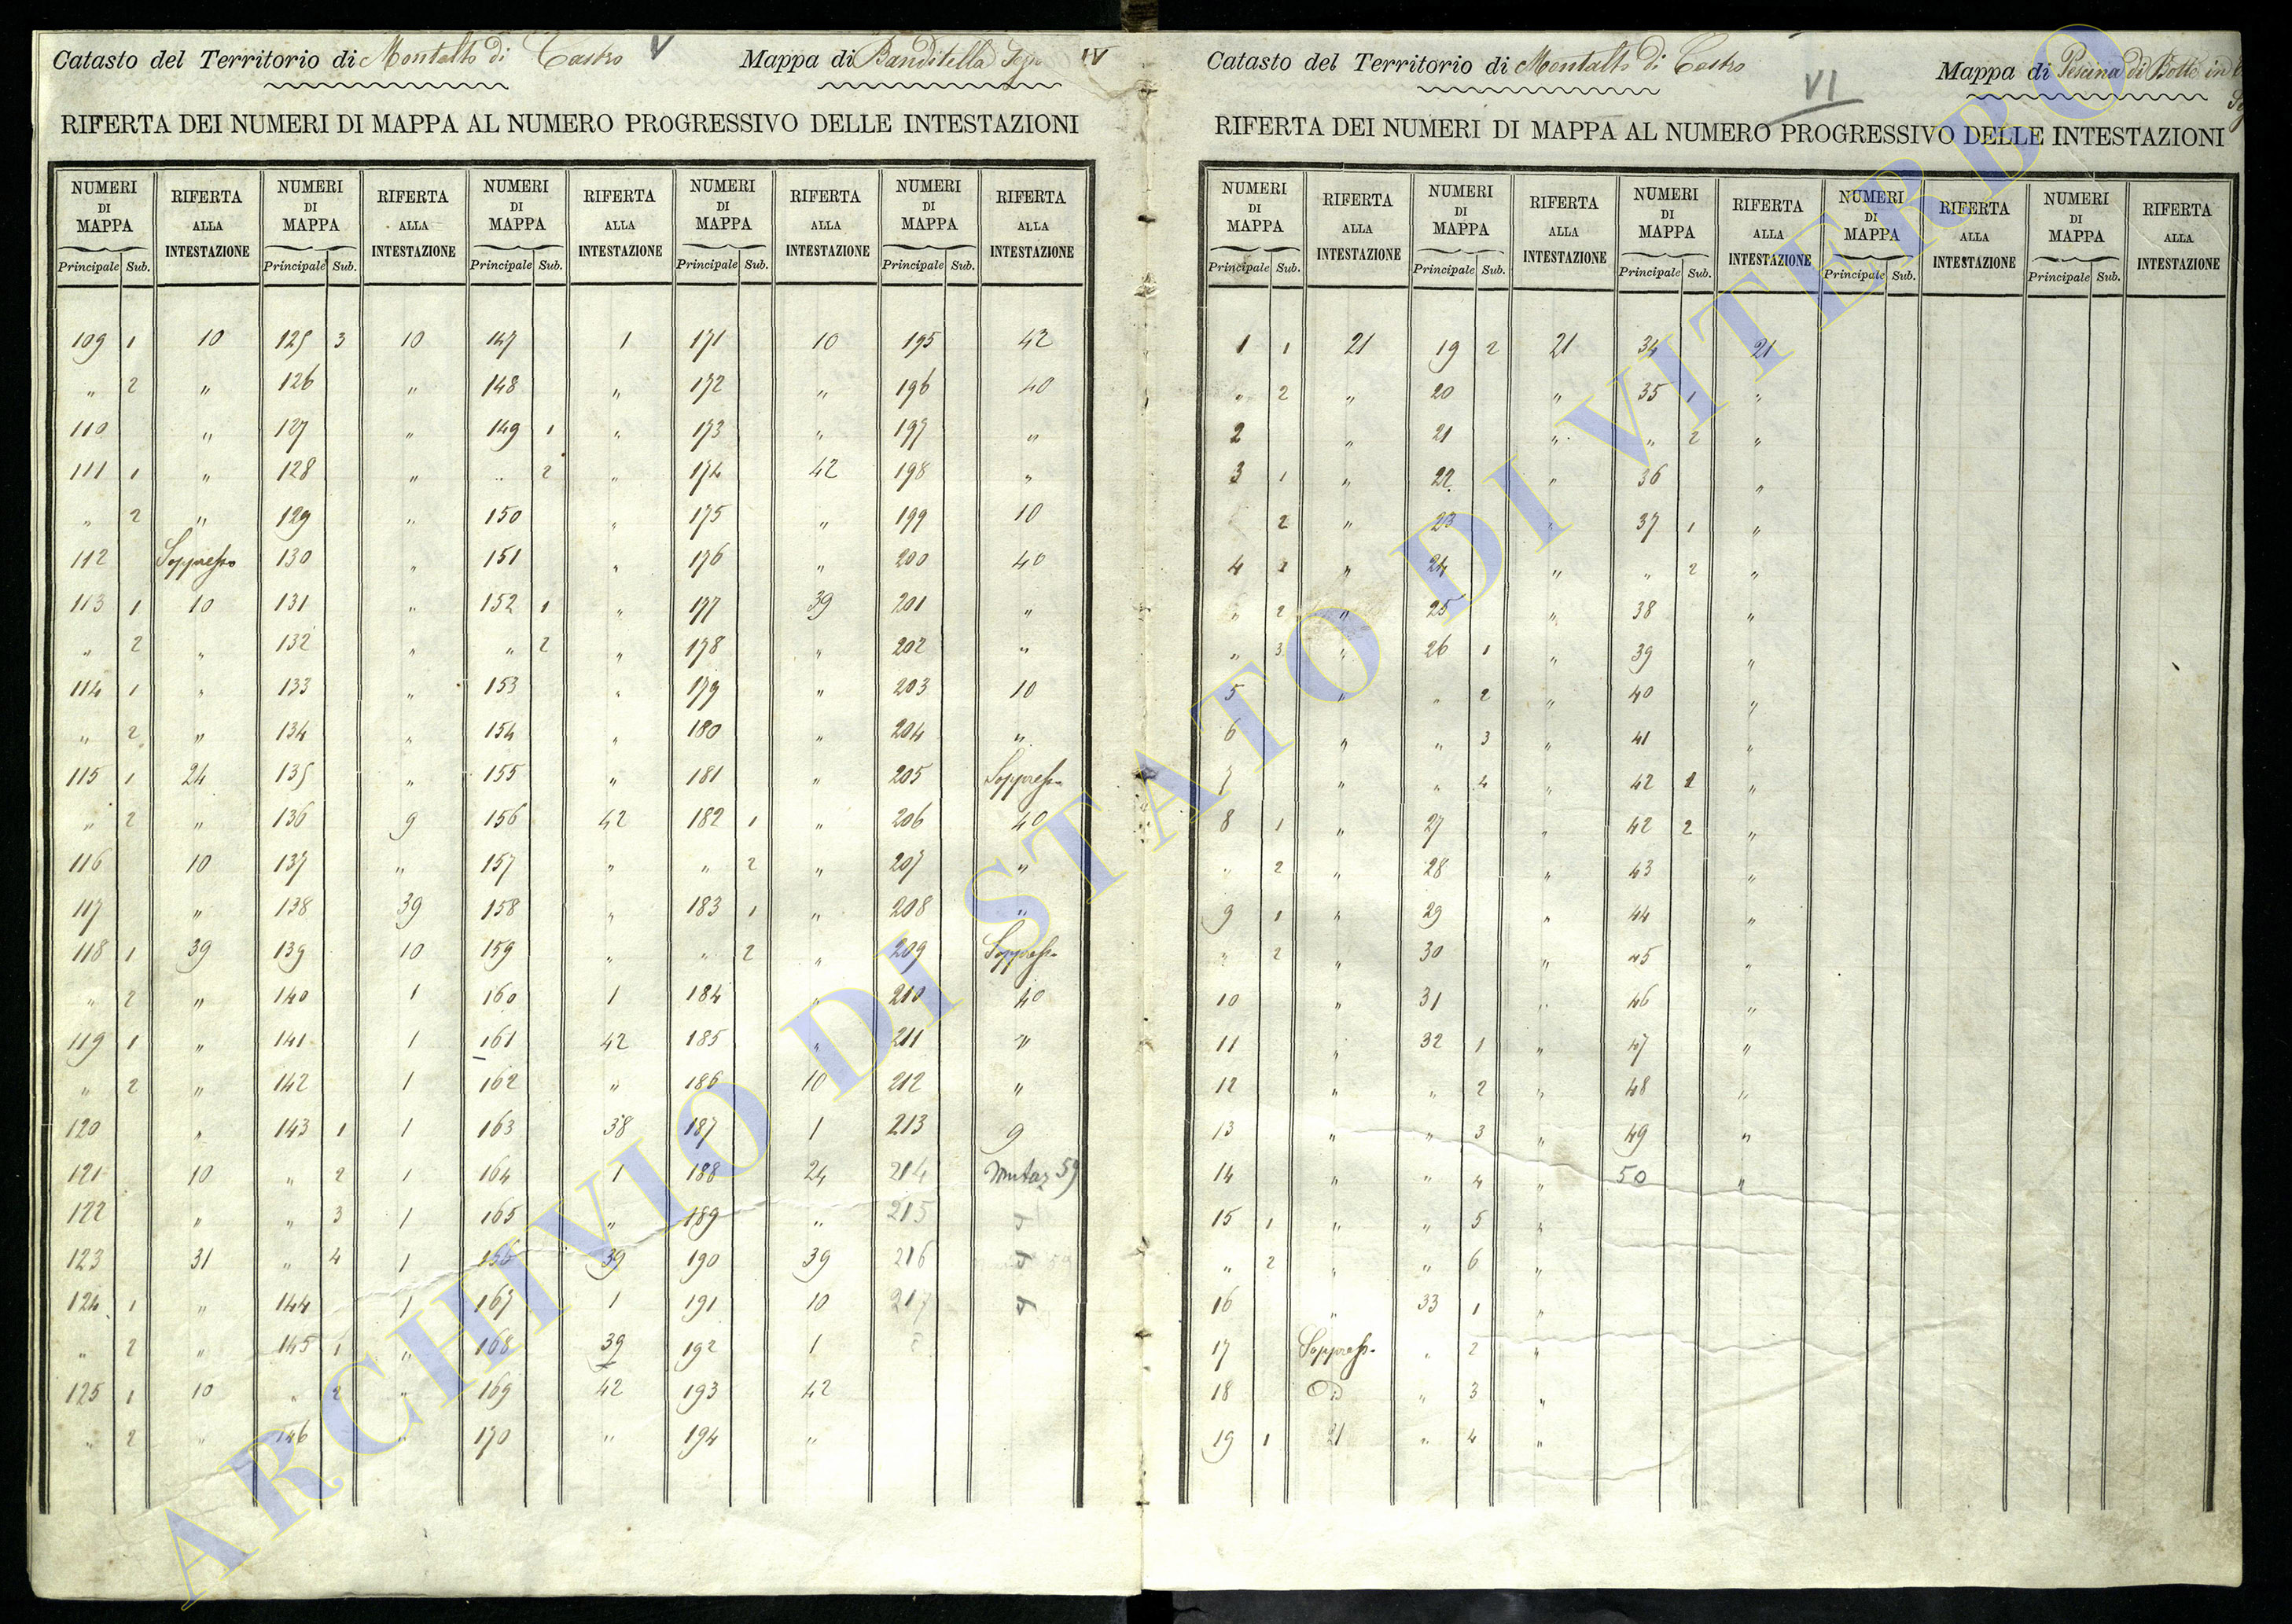 Catasto del Territorio di Montalto di Castro V Mappa di Banditella Segn IV
RIFERTA DEI NUMERI DI MAPPA AL NUMERO PROGRESSIVO DELLE INTESTAZIONI
NUMERI DI MAPPA RIFERTA ALLA INTESTAZIONE NUMERI DI MAPPA RIFERTA ALLA INTESTAZIONE NUMERI DI MAPPA RIFERTA ALLA INTESTAZIONE NUMERI DI MAPPA RIFERTA ALLA INTESTAZIONE NUMERI DI MAPPA RIFERTA ALLA INTESTAZIONE
Principale Sub. Principale Sub. Principale Sub. Principale Sub. Principale Sub.
109 1 10 125 3 10 147 1 171 10 195 42
" 2 " 126 " 148 " 172 " 196 40
110 " 127 " 149 1 " 173 " 197 "
111 1 " 128 " " 2 " 174 42 198 "
" 2 " 129 " 150 " 175 " 199 10
112 Soppresso 130 " 151 " 176 " 200 40
113 1 10 131 " 152 1 " 177 39 201 "
" 2 " 132 " " 2 " 178 " 202 "
114 1 " 133 " 153 " 179 " 203 10
" 2 " 134 " 154 " 180 " 204 "
115 1 24 135 " 155 " 181 " 205 Soppresso
" 2 " 136 9 156 42 182 1 " 206 40
116 10 137 " 157 " " 2 " 207 "
117 " 138 39 158 " 183 1 " 208 "
118 1 39 139 10 159 " " 2 " 209 Soppresso
" 2 " 140 1 160 1 184 " 210 40
119 1 " 141 1 161 42 185 " 211 "
" 2 " 142 1 162 " 186 10 212 "
120 " 143 1 1 163 38 187 1 213 9
121 10 " 2 1 164 1 188 24 214 Mutaz 59
122 " " 3 1 165 " 189 " 215
123 31 " 4 1 166 39 190 39 216
124 1 " 144 1 167 1 191 10 217
" 2 " 145 1 " 168 39 192 1
125 1 10 " 2 " 169 42 193 42
" 2 " 146 " 170 " 194 "
Catasto del Territorio di Montalto di Castro VI Mappa di Pescina di Botte in
RIFERTA DEI NUMERI DI MAPPA AL NUMERO PROGRESSIVO DELLE INTESTAZIONI
NUMERI DI MAPPA RIFERTA ALLA INTESTAZIONE NUMERI DI MAPPA RIFERTA ALLA INTESTAZIONE NUMERI DI MAPPA RIFERTA ALLA INTESTAZIONE NUMERI DI MAPPA RIFERTA ALLA INTESTAZIONE NUMERI DI MAPPA RIFERTA ALLA INTESTAZIONE
Principale Sub. Principale Sub. Principale Sub. Principale Sub. Principale Sub.
1 1 21 19 2 21 34 21
" 2 " 20 " 35 1 "
2 " 21 " " 2 "
3 1 " 22 " 36 "
2 " 23 " 37 1 "
4 1 " 24 " " 2 "
" 2 " 25 " 38 "
" 3 " 26 1 " 39 "
5 " " 2 " 40 "
6 " " 3 " 41 "
7 " " 4 " 42 1 "
8 1 " 27 " 42 2 "
" 2 " 28 " 43 "
9 1 " 29 " 44 "
" 2 " 30 " 45 "
10 " 31 " 46 "
11 " 32 1 " 47 "
12 " " 2 " 48 "
13 " " 3 " 49 "
14 " " 4 " 50 "
15 1 " " 5 "
" 2 " " 6 "
16 " 33 1 "
17 Soppresso " 2 "
18 Id " 3 "
19 1 21 " 4 "
ARCHIVIO DI STATO DI VITERBO